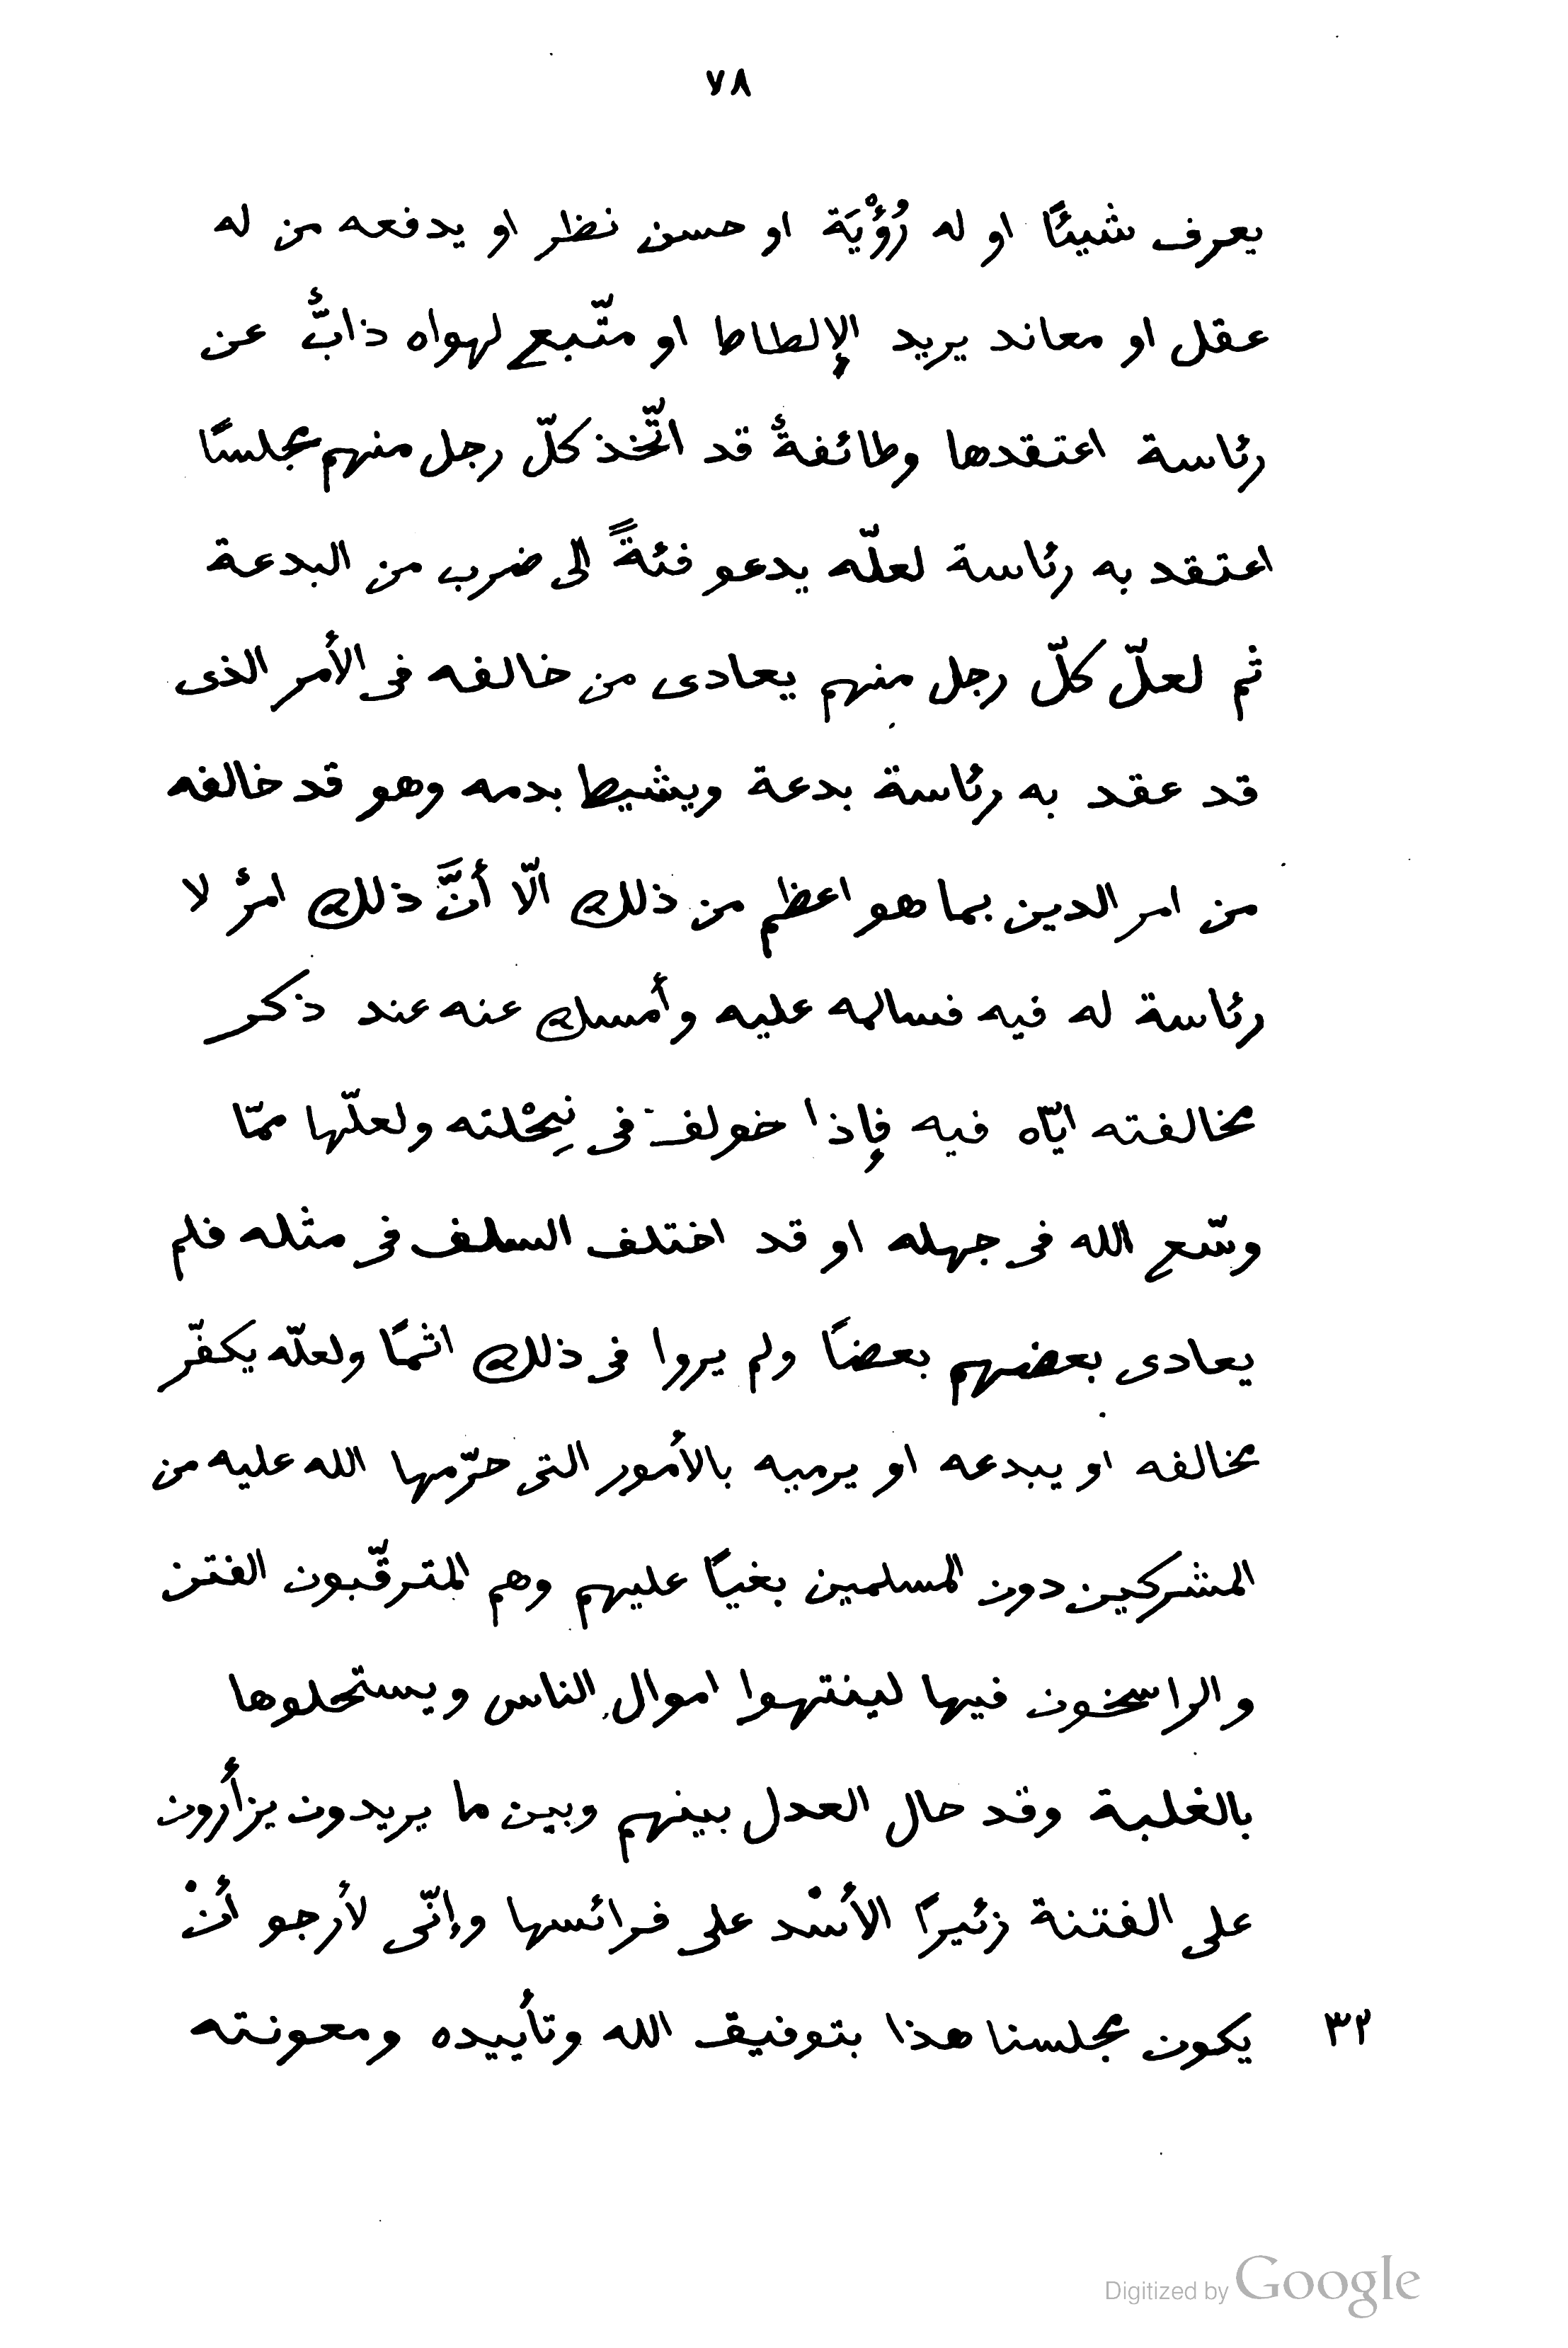 ٧٨
يعرف شيئًا او له رُؤْيَة او حسن نظر او يدفعه من له
عقل او معاند يريد الإلطاط او متّبع لهواه ذابٌّ عن
رئاسة اعتقدها وطائفةٌ قد اتّخذ كلّ رجل منهم مجلسًا
اعتقد به رئاسة لعلّه يدعو فئةً الى ضرب من البدعة
ثم لعلّ كلّ رجل منهم يعادى من خالفه فى الأمر الذى
قد عقد به رئاسة بدعة ويشيط بدمه وهو قد خالفه
من امر الدين بما هو اعظم من ذلك الّا أنَّ ذلك امرٌ لا
رئاسة له فيه فسالمه عليه وأمسك عنه عند ذكر
مخالفته ايّاه فيه فإذا خولف فى نِحْلته ولعلّها ممّا
وسّع الله فى جهله او قد اختلف السلف فى مثله فلم
يعادى بعضهم بعضًا ولم يروا فى ذلك اثمًا ولعلّه يكفّر
مخالفه او يبدعه او يرميه بالأمور التى حرّمها الله عليه من
المشركين دون المسلمين بغيًا عليهم وهم المترقّبون الفتن
والراسخون فيها لينتهوا اموال الناس ويستحلوها
بالغلبة وقد حال العدل بينهم وبين ما يريدون يزأرون
على الفتنة زئيرًا الأسْد على فرائسها وإنّى لأرجو أنْ
٣٢ يكون مجلسنا هذا بتوفيق الله وتأييده ومعونته
Digitized by Google